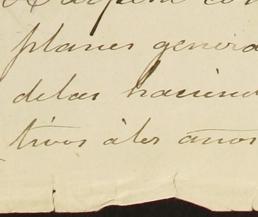 planes genera
delas haciend
tivos áles años